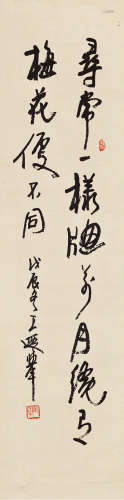 尋常一樣牕前月纔有
梅花便不同
戊辰冬王遐舉